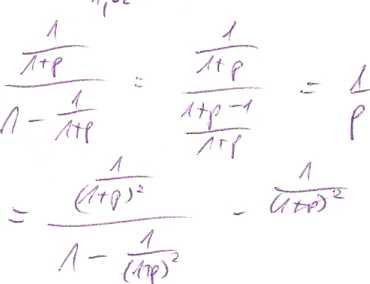 \frac{\frac{1}{1+p}}{1-\frac{1}{1+p}} = \frac{\frac{1}{1+p}}{\frac{1+p-1}{1+p}} = \frac{1}{p}
= \frac{\frac{1}{(1+p)^2}}{1-\frac{1}{(1+p)^2}} - \frac{1}{(1+p)^2}